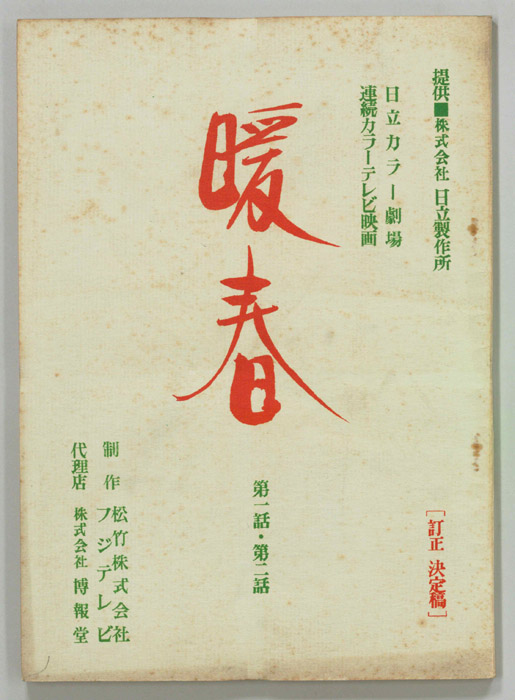 提供■株式会社 日立製作所
日立カラー劇場
連続カラーテレビ映画
暖春
［訂正 決定稿］
第一話・第二話
制作 松竹株式会社
フジテレビ
代理店 株式会社 博報堂